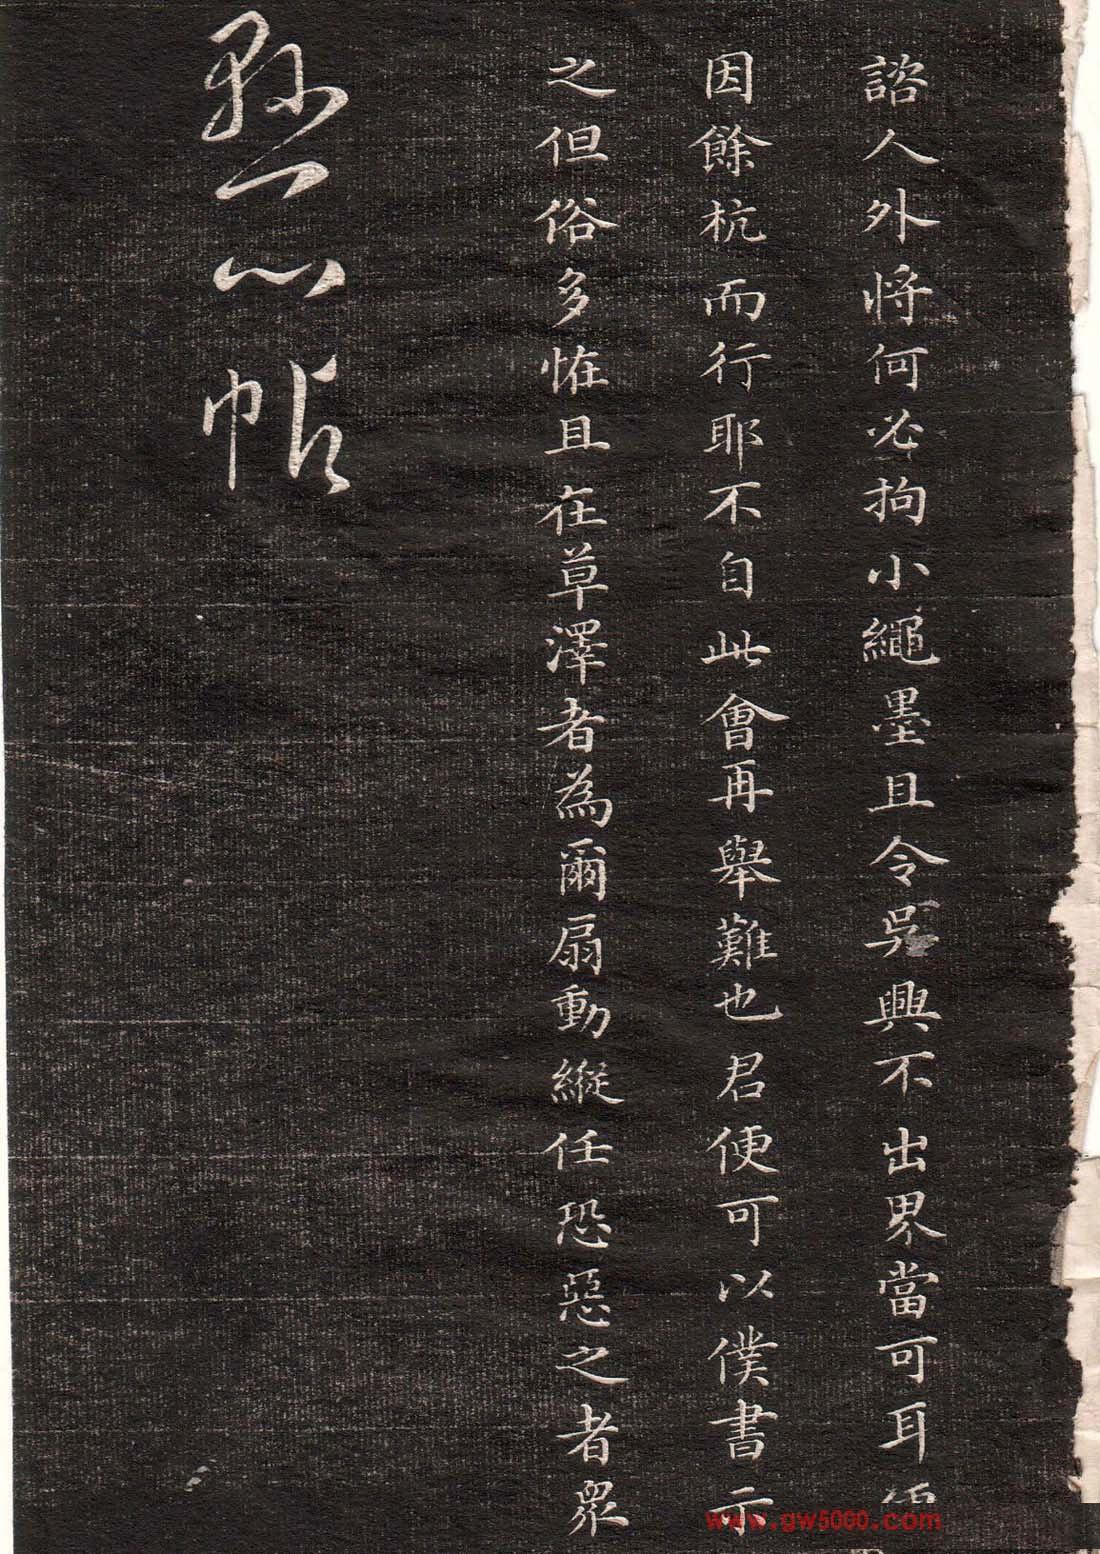 諮人外將何必拘小繩墨且令吳興不出界當可耳
因餘杭而行耶不自此會再舉難也君便可以僕書示
之但俗多恠且在草澤者為爾扇動縱任恐惡之者眾
帖
www.gw5000.com